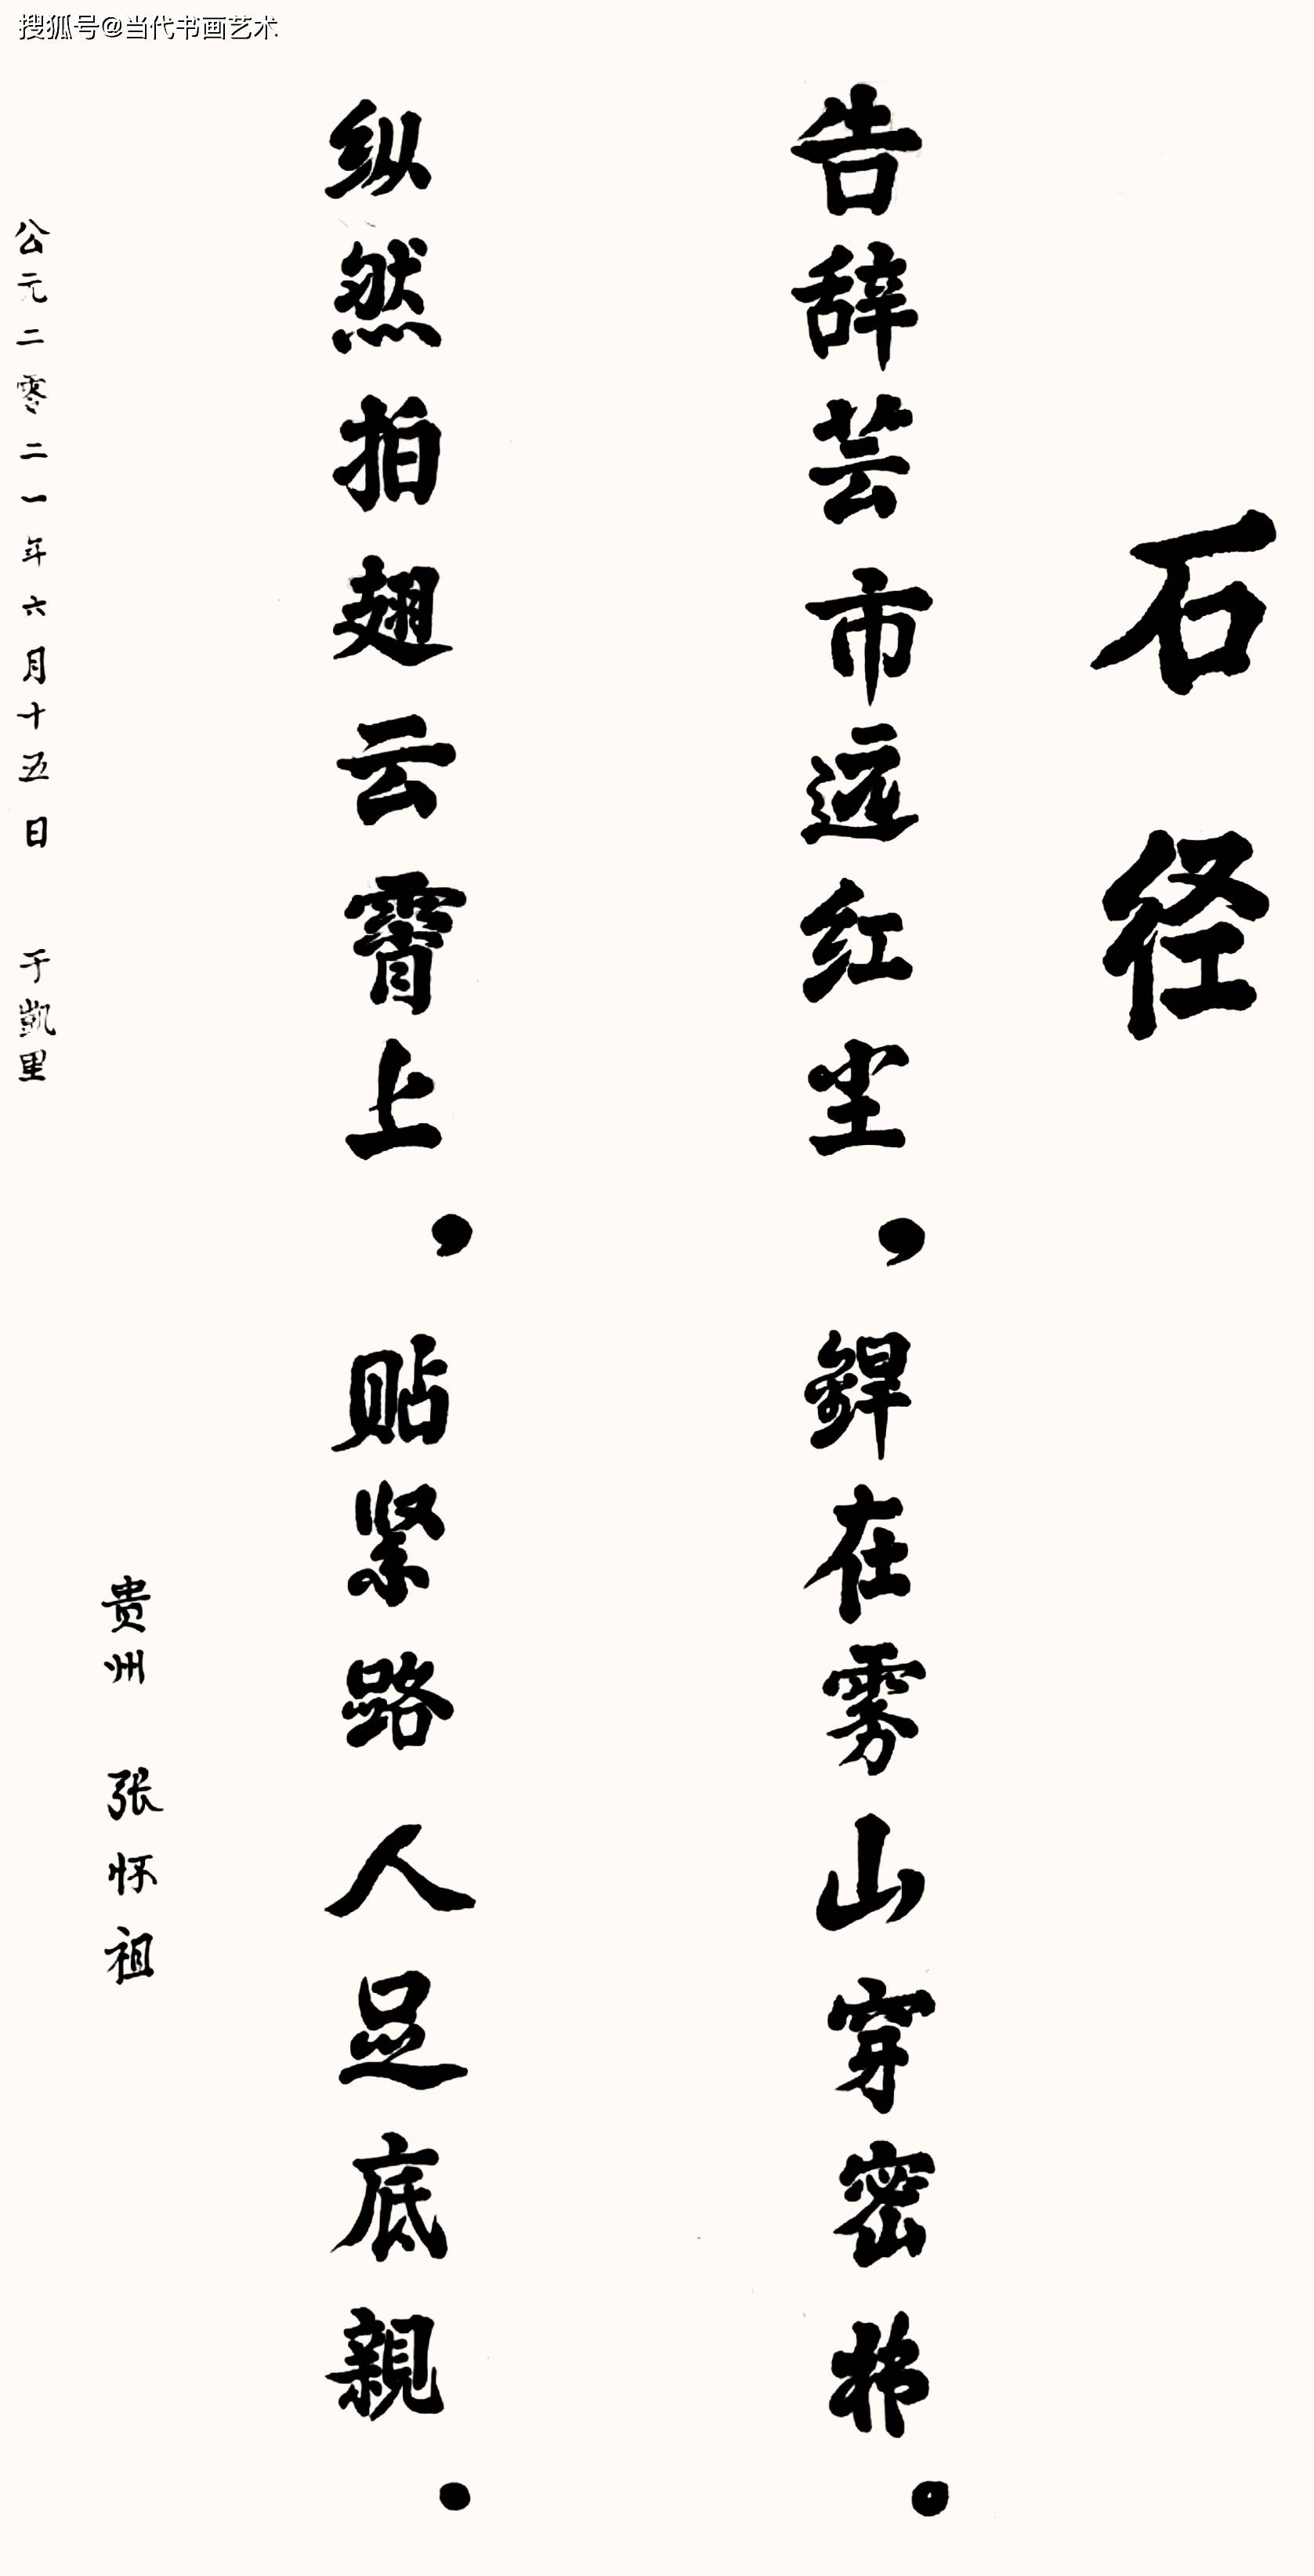 搜狐号@当代书画艺术
石径
告辞芸市远红尘，銲在雾山穿密。
纵然拍翅云霄上，贴紧路人足底親.
贵州 张怀祖
公元二零二一年六月十五日 于凱里